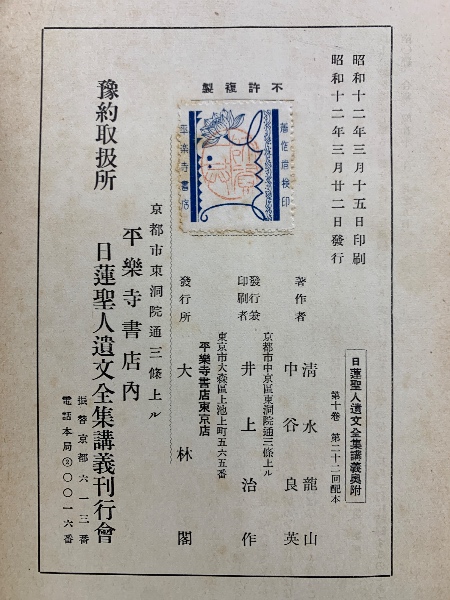 昭和十二年三月十五日印刷
昭和十二年三月廿二日發行
不許複製
著作權檢印
平樂寺書店
日蓮聖人遺文全集講義奧附
第十卷 第二十二回配本
著作者
清水龍山
中谷良英
京都市中京區東洞院通三條上ル
發行兼
印刷者
井上治作
東京市大森區上池上町五六五番
平樂寺書店東京店
發行所
大林閣
京都市東洞院通三條上ル
平樂寺書店內
豫約取扱所
日蓮聖人遺文全集講義刊行會
振替京都六一三番
電話本局②〇〇一六番